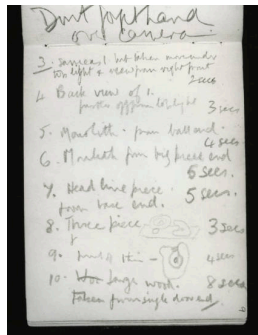 Don't forget hand
over camera
3. Same as 1 but taken more under
top light & seen from right front
2 secs
4. Back view of 1.
3 secs
5. Monolith - from ball end.
4 secs
6. Monolith from big piece end
5 secs.
7. Head line piece.
from base end. 5 secs.
8. Three piece 3 secs
9. 4 secs
10. Large work. 8 secs
Taken from single door end.